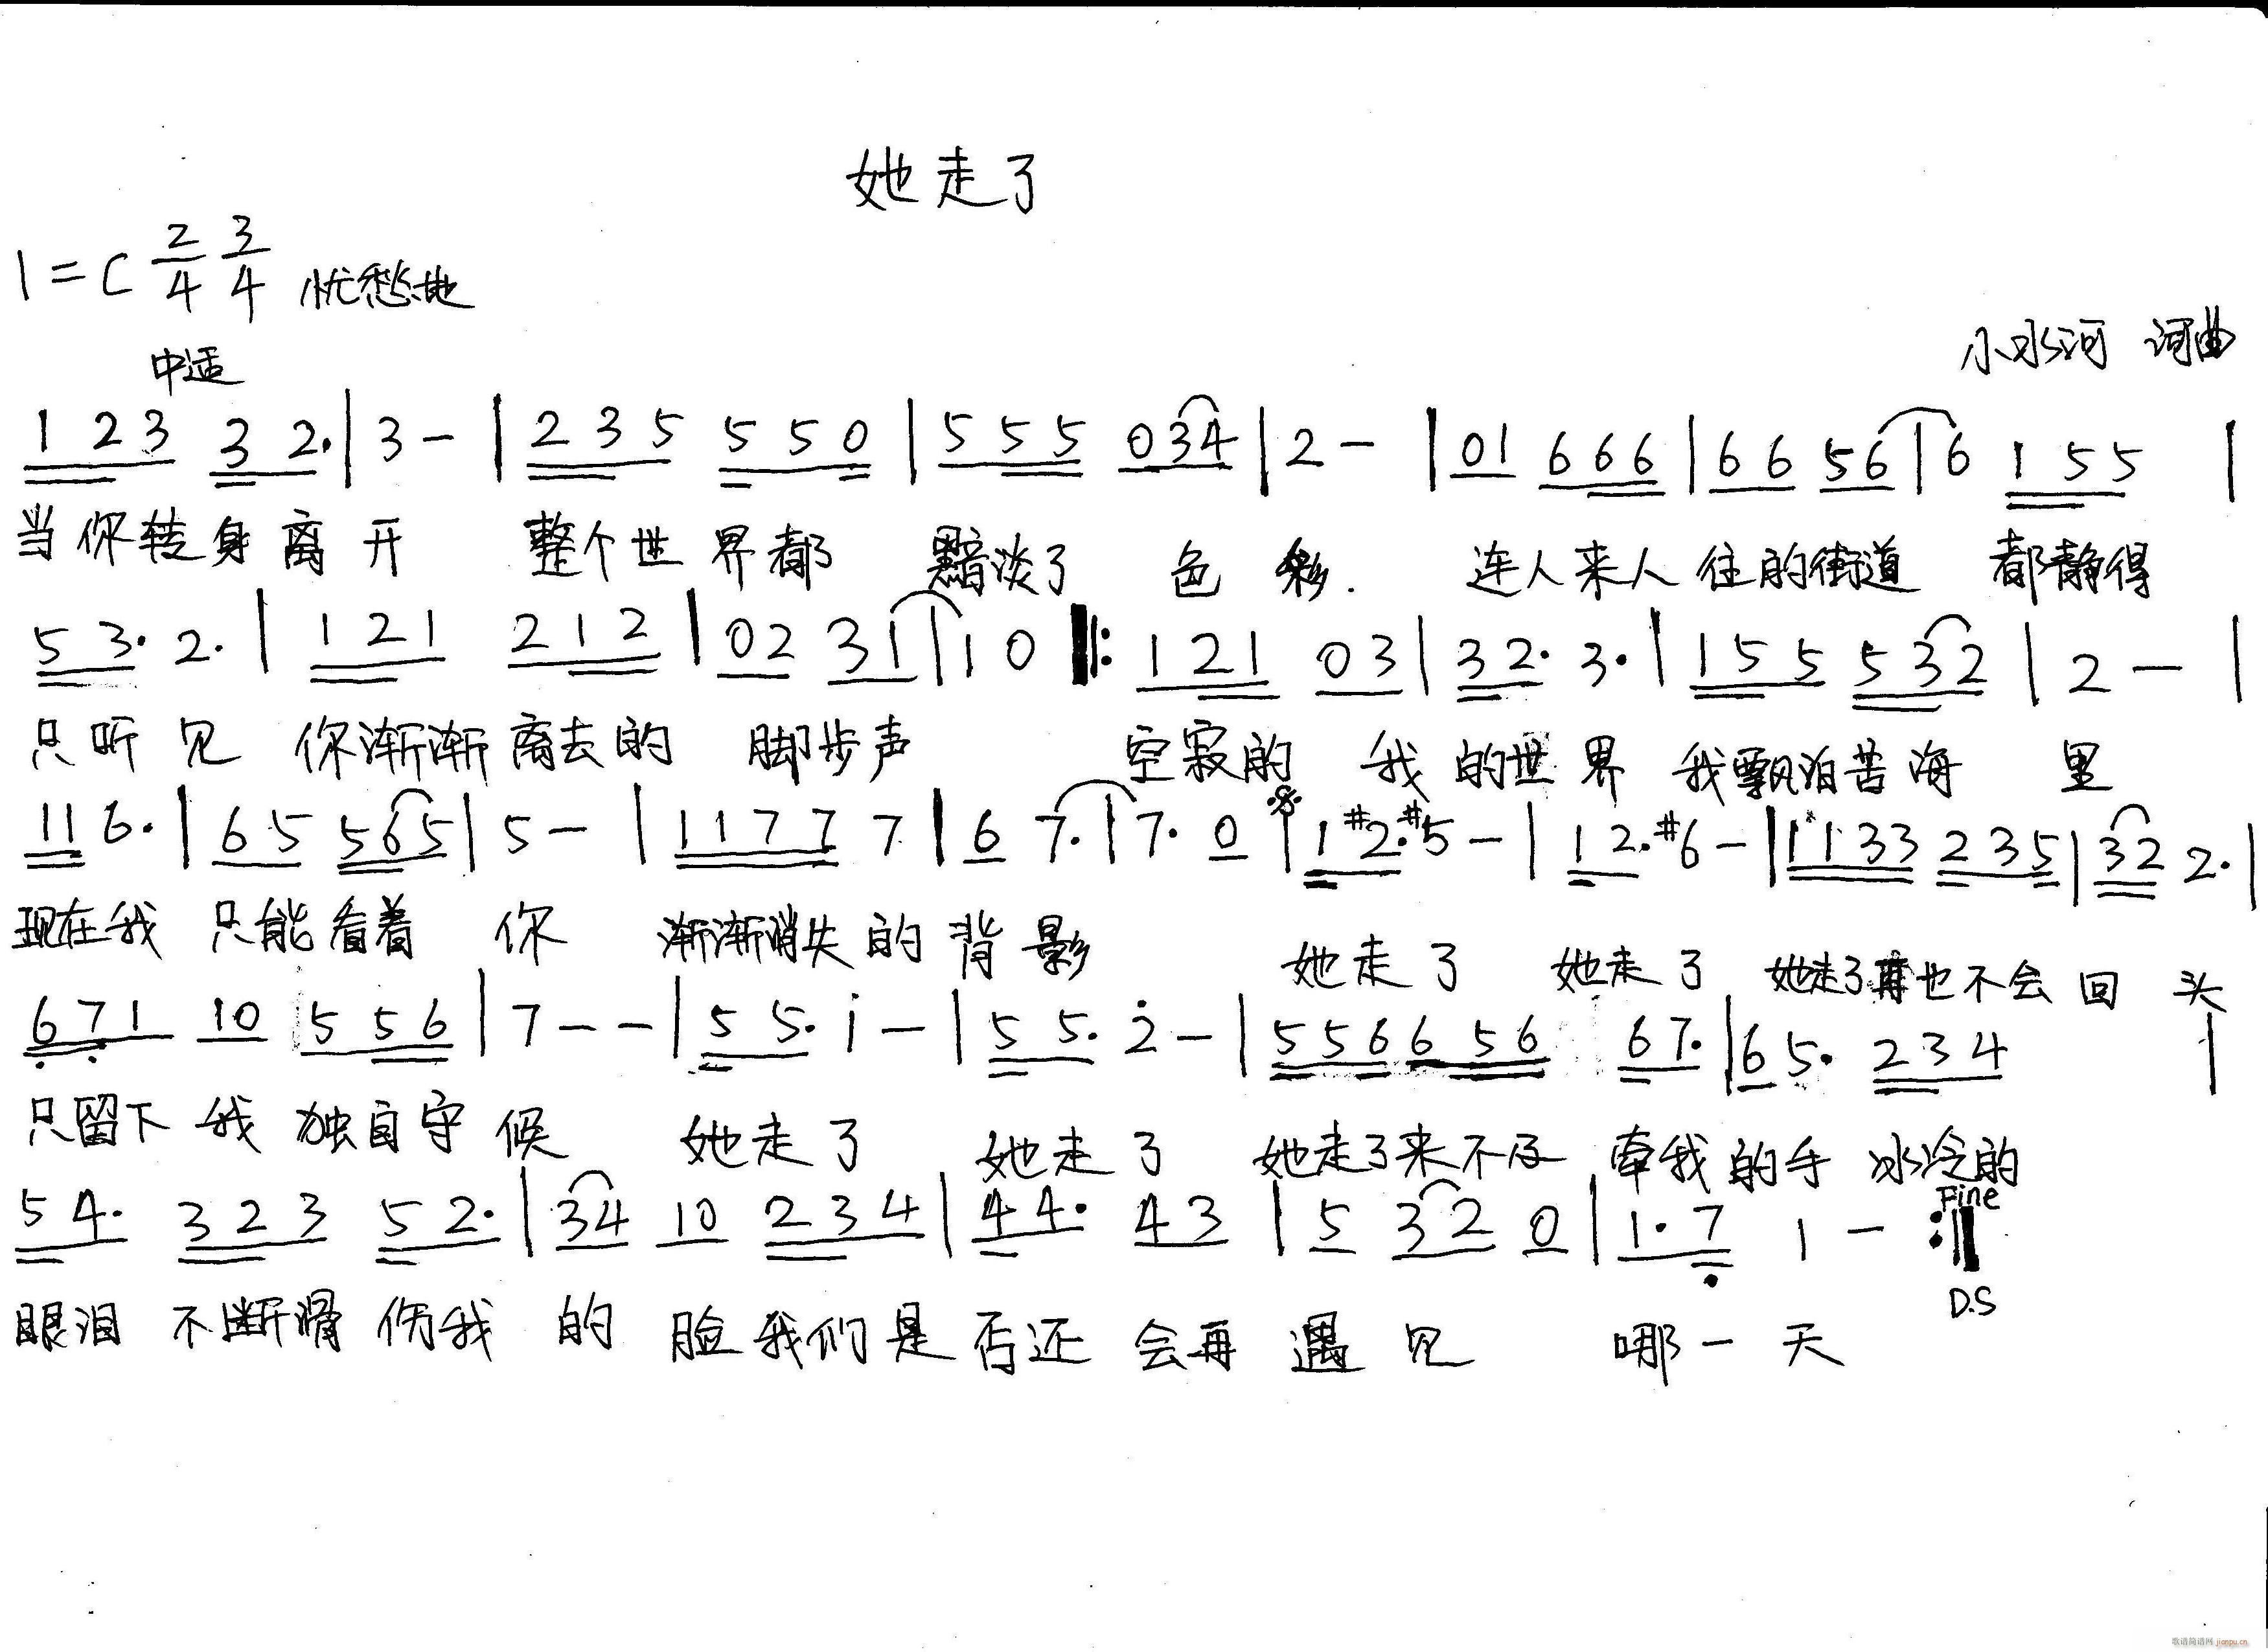 她走了
1=C 2/4 3/4 忧愁地
中适
小水河 词曲
1 2 3 3 2. | 3 - | 2 3 5 5 5 0 | 5 5 5 0 3 4 | 2 - | 0 1 6 6 6 | 6 6 5 6 | 6 1 5 5 |
当你转身离开 整个世界都 黯淡了 色彩. 连人来人往的街道 都静得
5 3. 2. | 1 2 1 2 1 2 | 0 2 3 1 | 1 0 ‖: 1 2 1 0 3 | 3 2. 3. | 1 5 5 5 3 2 | 2 - |
只听见 你渐渐离去的 脚步声 空寂的 我的世界 我飘泊苦海 里
1 1 6. | 6 5 5 6 5 | 5 - | 1 1 7 7 7 | 6 7. | 7. 0 | 1 #2. #5 - | 1 2. #6 - | 1 1 3 3 2 3 5 | 3 2 2. |
现在我 只能看着 你 渐渐消失的背影 她走了 她走了 她走了再也不会回头
6 7 1 1 0 5 5 6 | 7 - - | 5 5. i - | 5 5. 2 - | 5 5 6 6 5 6 6 7. | 6 5. 2 3 4 |
只留下我 独自守候 她走了 她走了 她走了来不及 牵我的手 冰冷的
5 4. 3 2 3 5 2. | 3 4 1 0 2 3 4 | 4 4. 4 3 | 5 3 2 0 | 1. 7 1 - :‖
Fine
D.S
眼泪 不断滑 伤我 的 脸我们是否还 会再 遇见 哪一天
歌谱简谱网 jianpu.cn